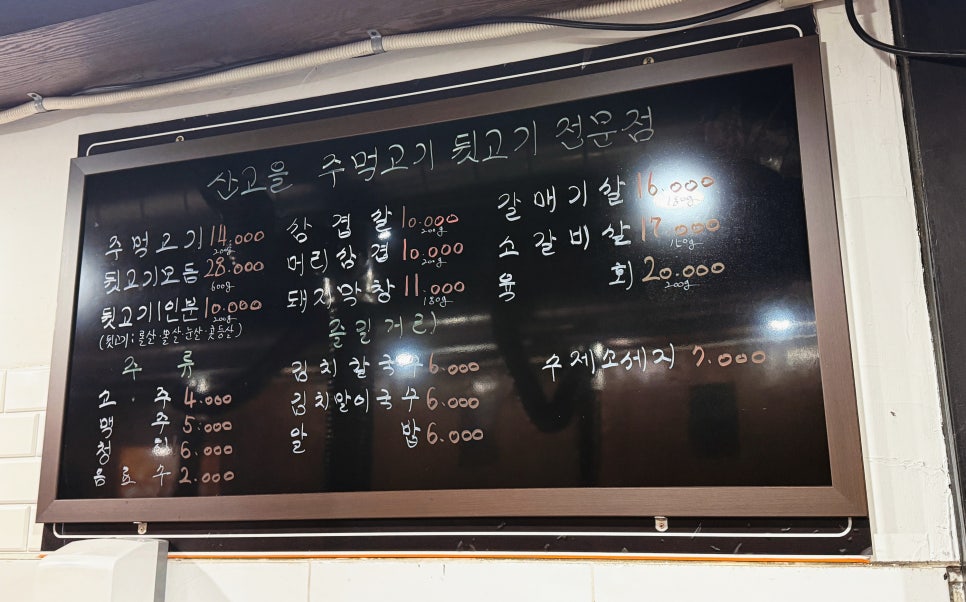 산고을 주먹고기 뒷고기 전문점
주먹고기 14.000
200g
뒷고기모듬 28.000
600g
뒷고기1인분 10.000
200g
(뒷고기; 볼살·뽈살·눈살·콧등살)
주 류
소 주 4.000
맥 주 5.000
청 하 6.000
음료수 2.000
삼겹살 10.000
200g
머리삼겹 10.000
200g
돼지막창 11.000
180g
즐길거리
김치칼국수 6.000
김치말이국수 6.000
알 밥 6.000
갈매기살 16.000
180g
소갈비살 17.000
150g
육 회 20.000
200g
수제소세지 7.000